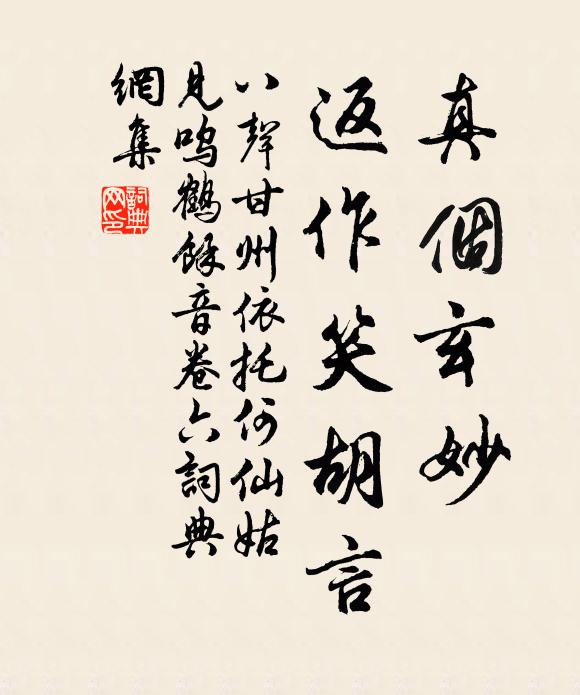 真個玄妙
返作笑胡言
八聲甘州依托何仙姑
見鳴鶴餘音卷六詞典
網集
詞典
网印